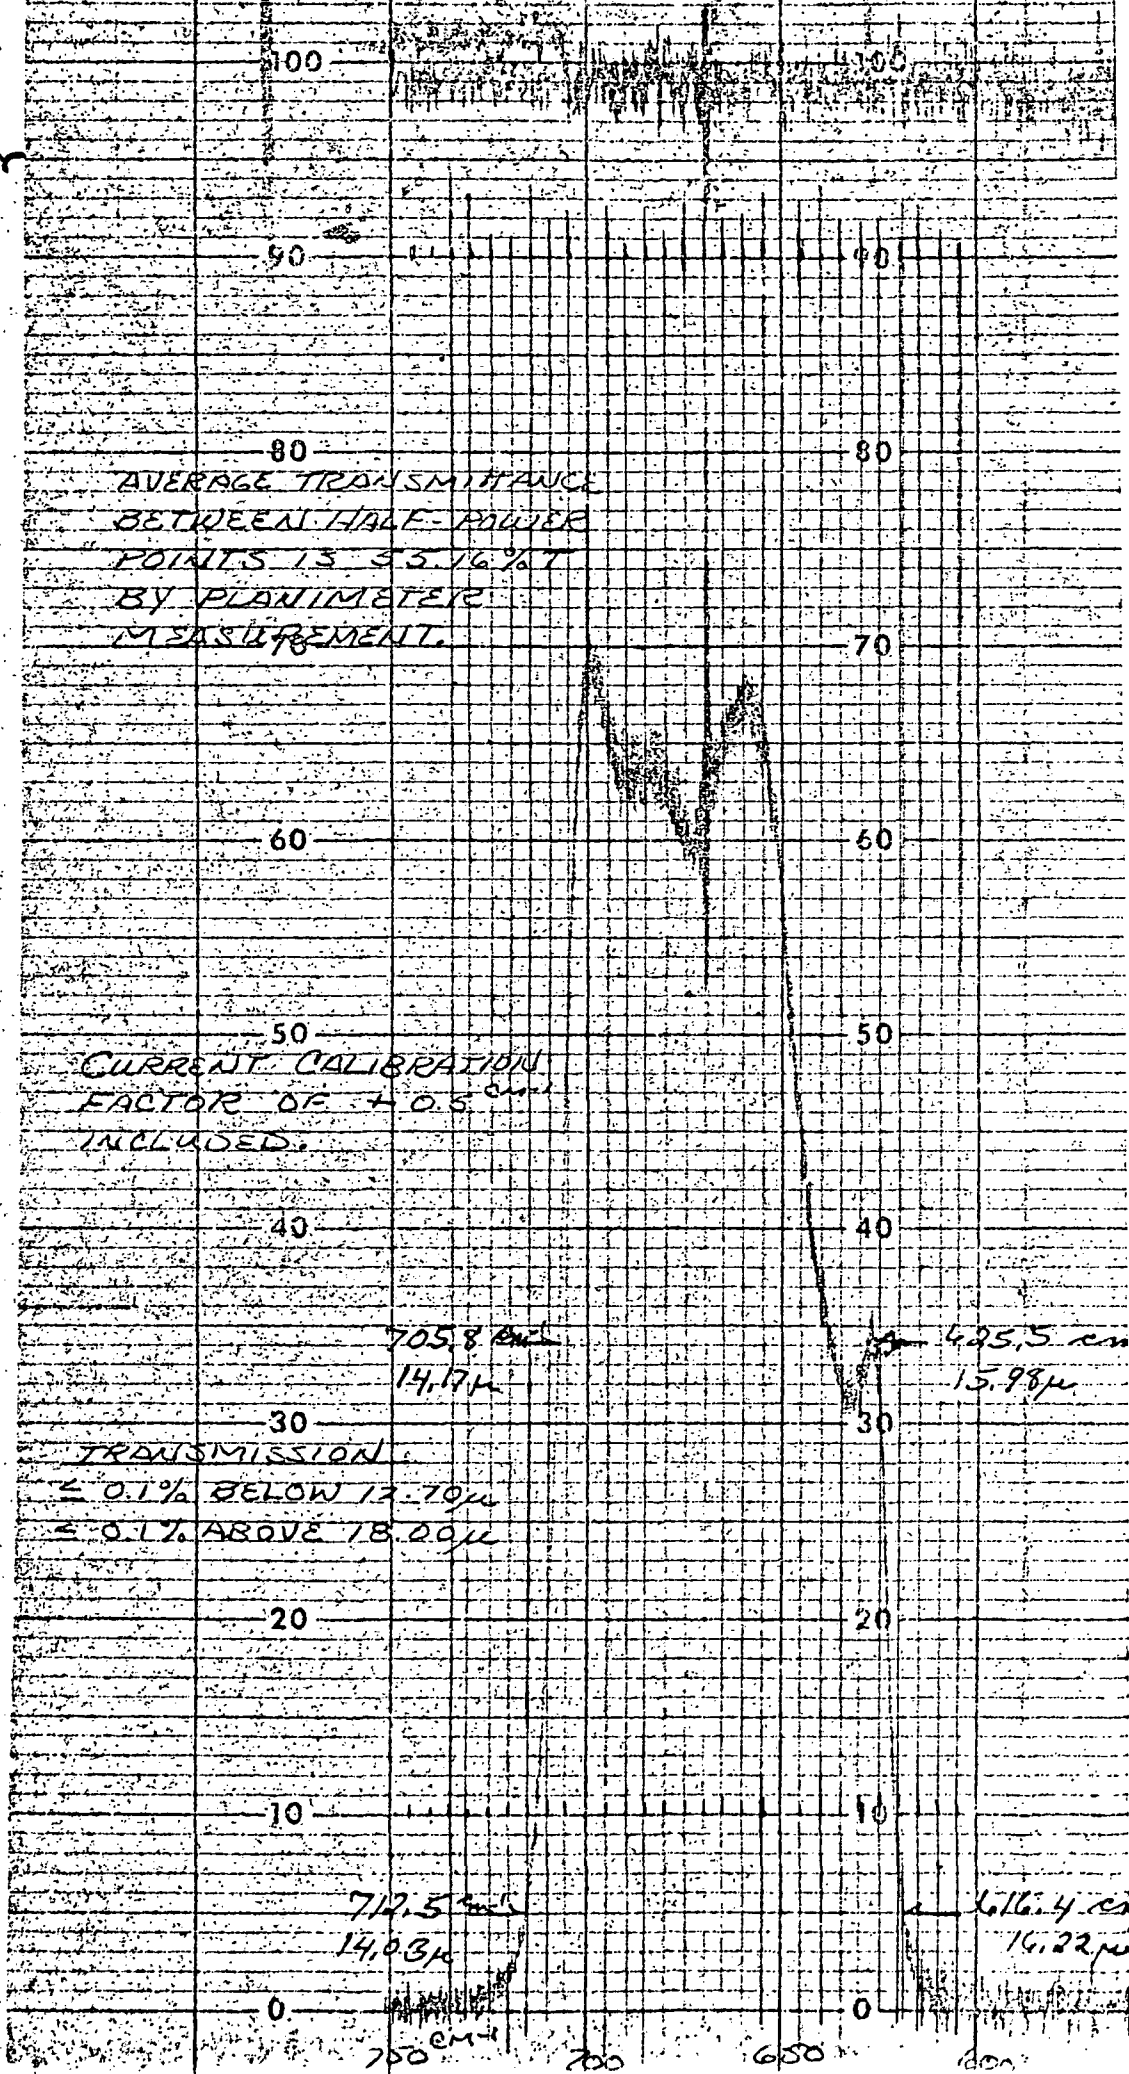 100 100
90 90
80 80
AVERAGE TRANSMITTANCE
BETWEEN HALF-POWER
POINTS IS 55.16% T
BY PLANIMETER
MEASUREMENT.
70 70
60 60
50 50
CURRENT CALIBRATION
FACTOR OF + 0.5 CM-1
INCLUDED.
40 40
705.8 cm-1 625.5 cm
14.17μ 15.98μ
30 30
TRANSMISSION
≤ 0.1% BELOW 12.70μ
≤ 0.1% ABOVE 18.00μ
20 20
10 10
712.5 cm-1 616.4 cm
14.03μ 16.22μ
0 0
CM-1
750 700 650 600